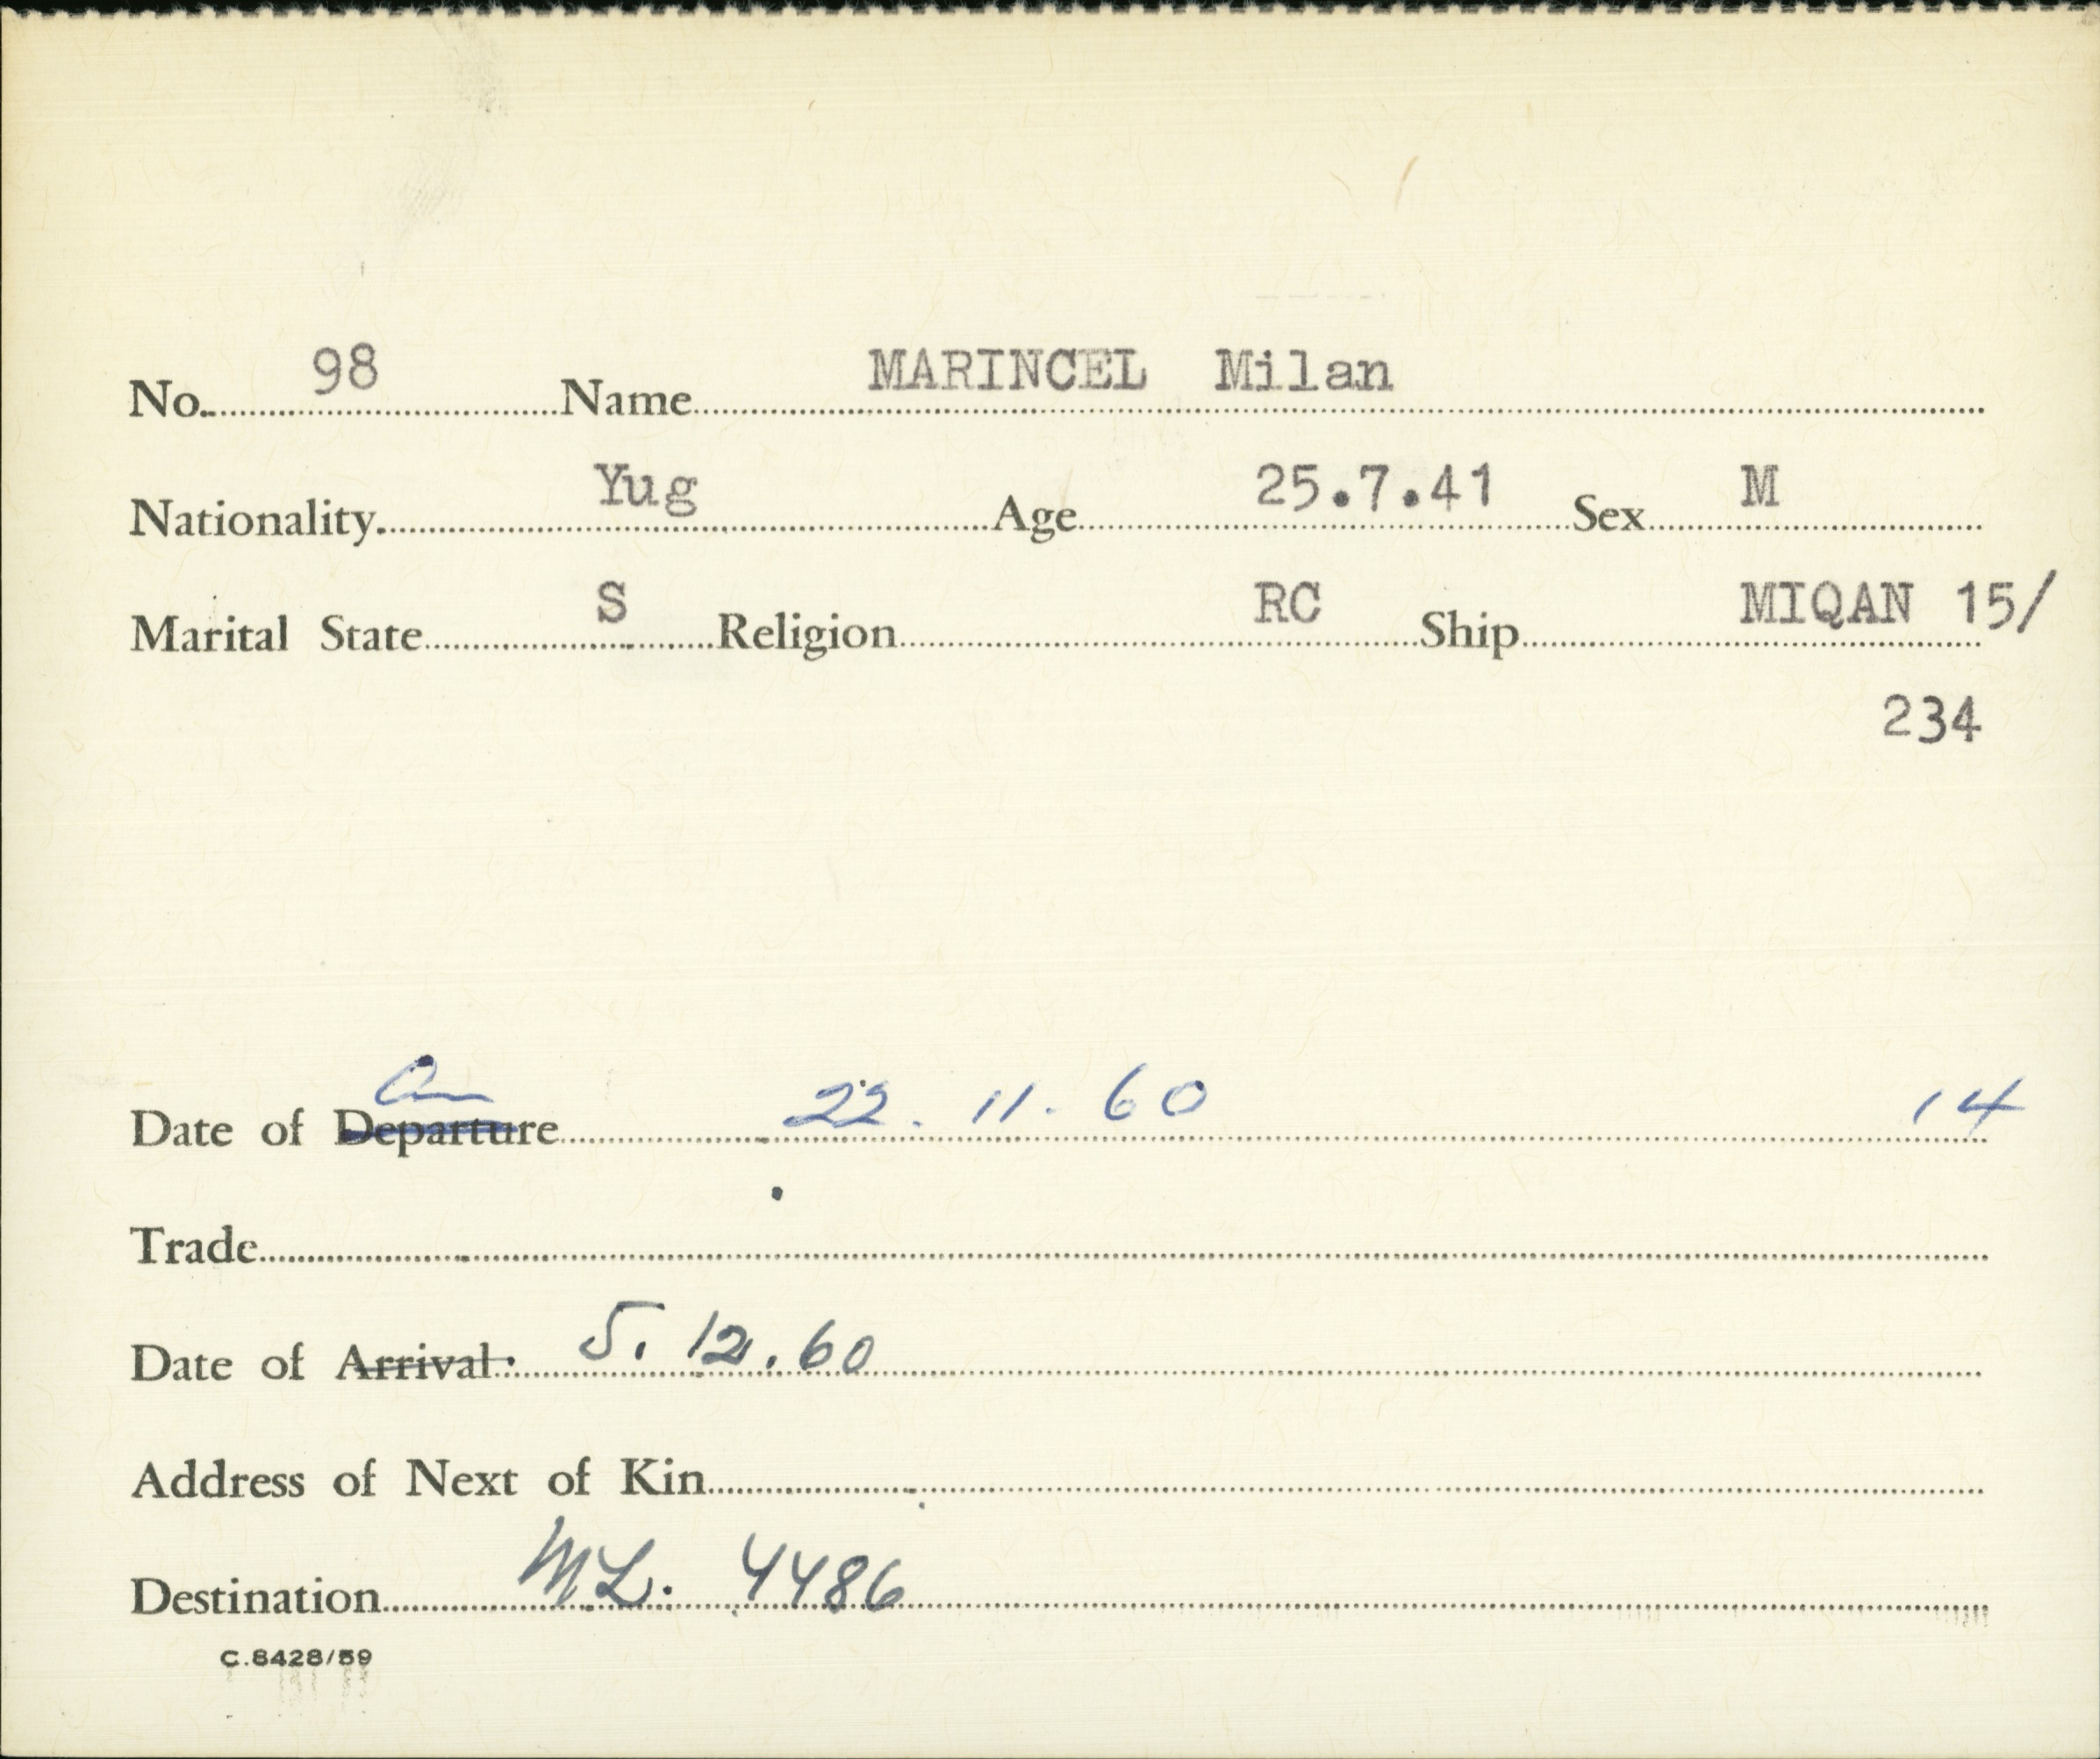 No. 98 Name MARINCEL Milan
Nationality Yug Age 25.7.41 Sex M
Marital State S Religion RC Ship MIQAN 15/
234
Date of Departure 22.11.60 14
Trade
Date of Arrival 5.12.60
Address of Next of Kin
Destination ML. 4486
C.8428/59